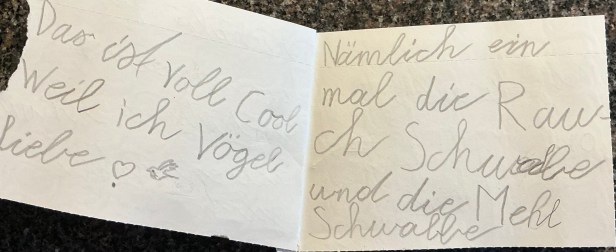 Das ist voll Cool
Weil ich Vögel
liebe ♡
Nämlich ein
mal die Rau-
ch Schwalbe
und die Mehl
Schwalbe